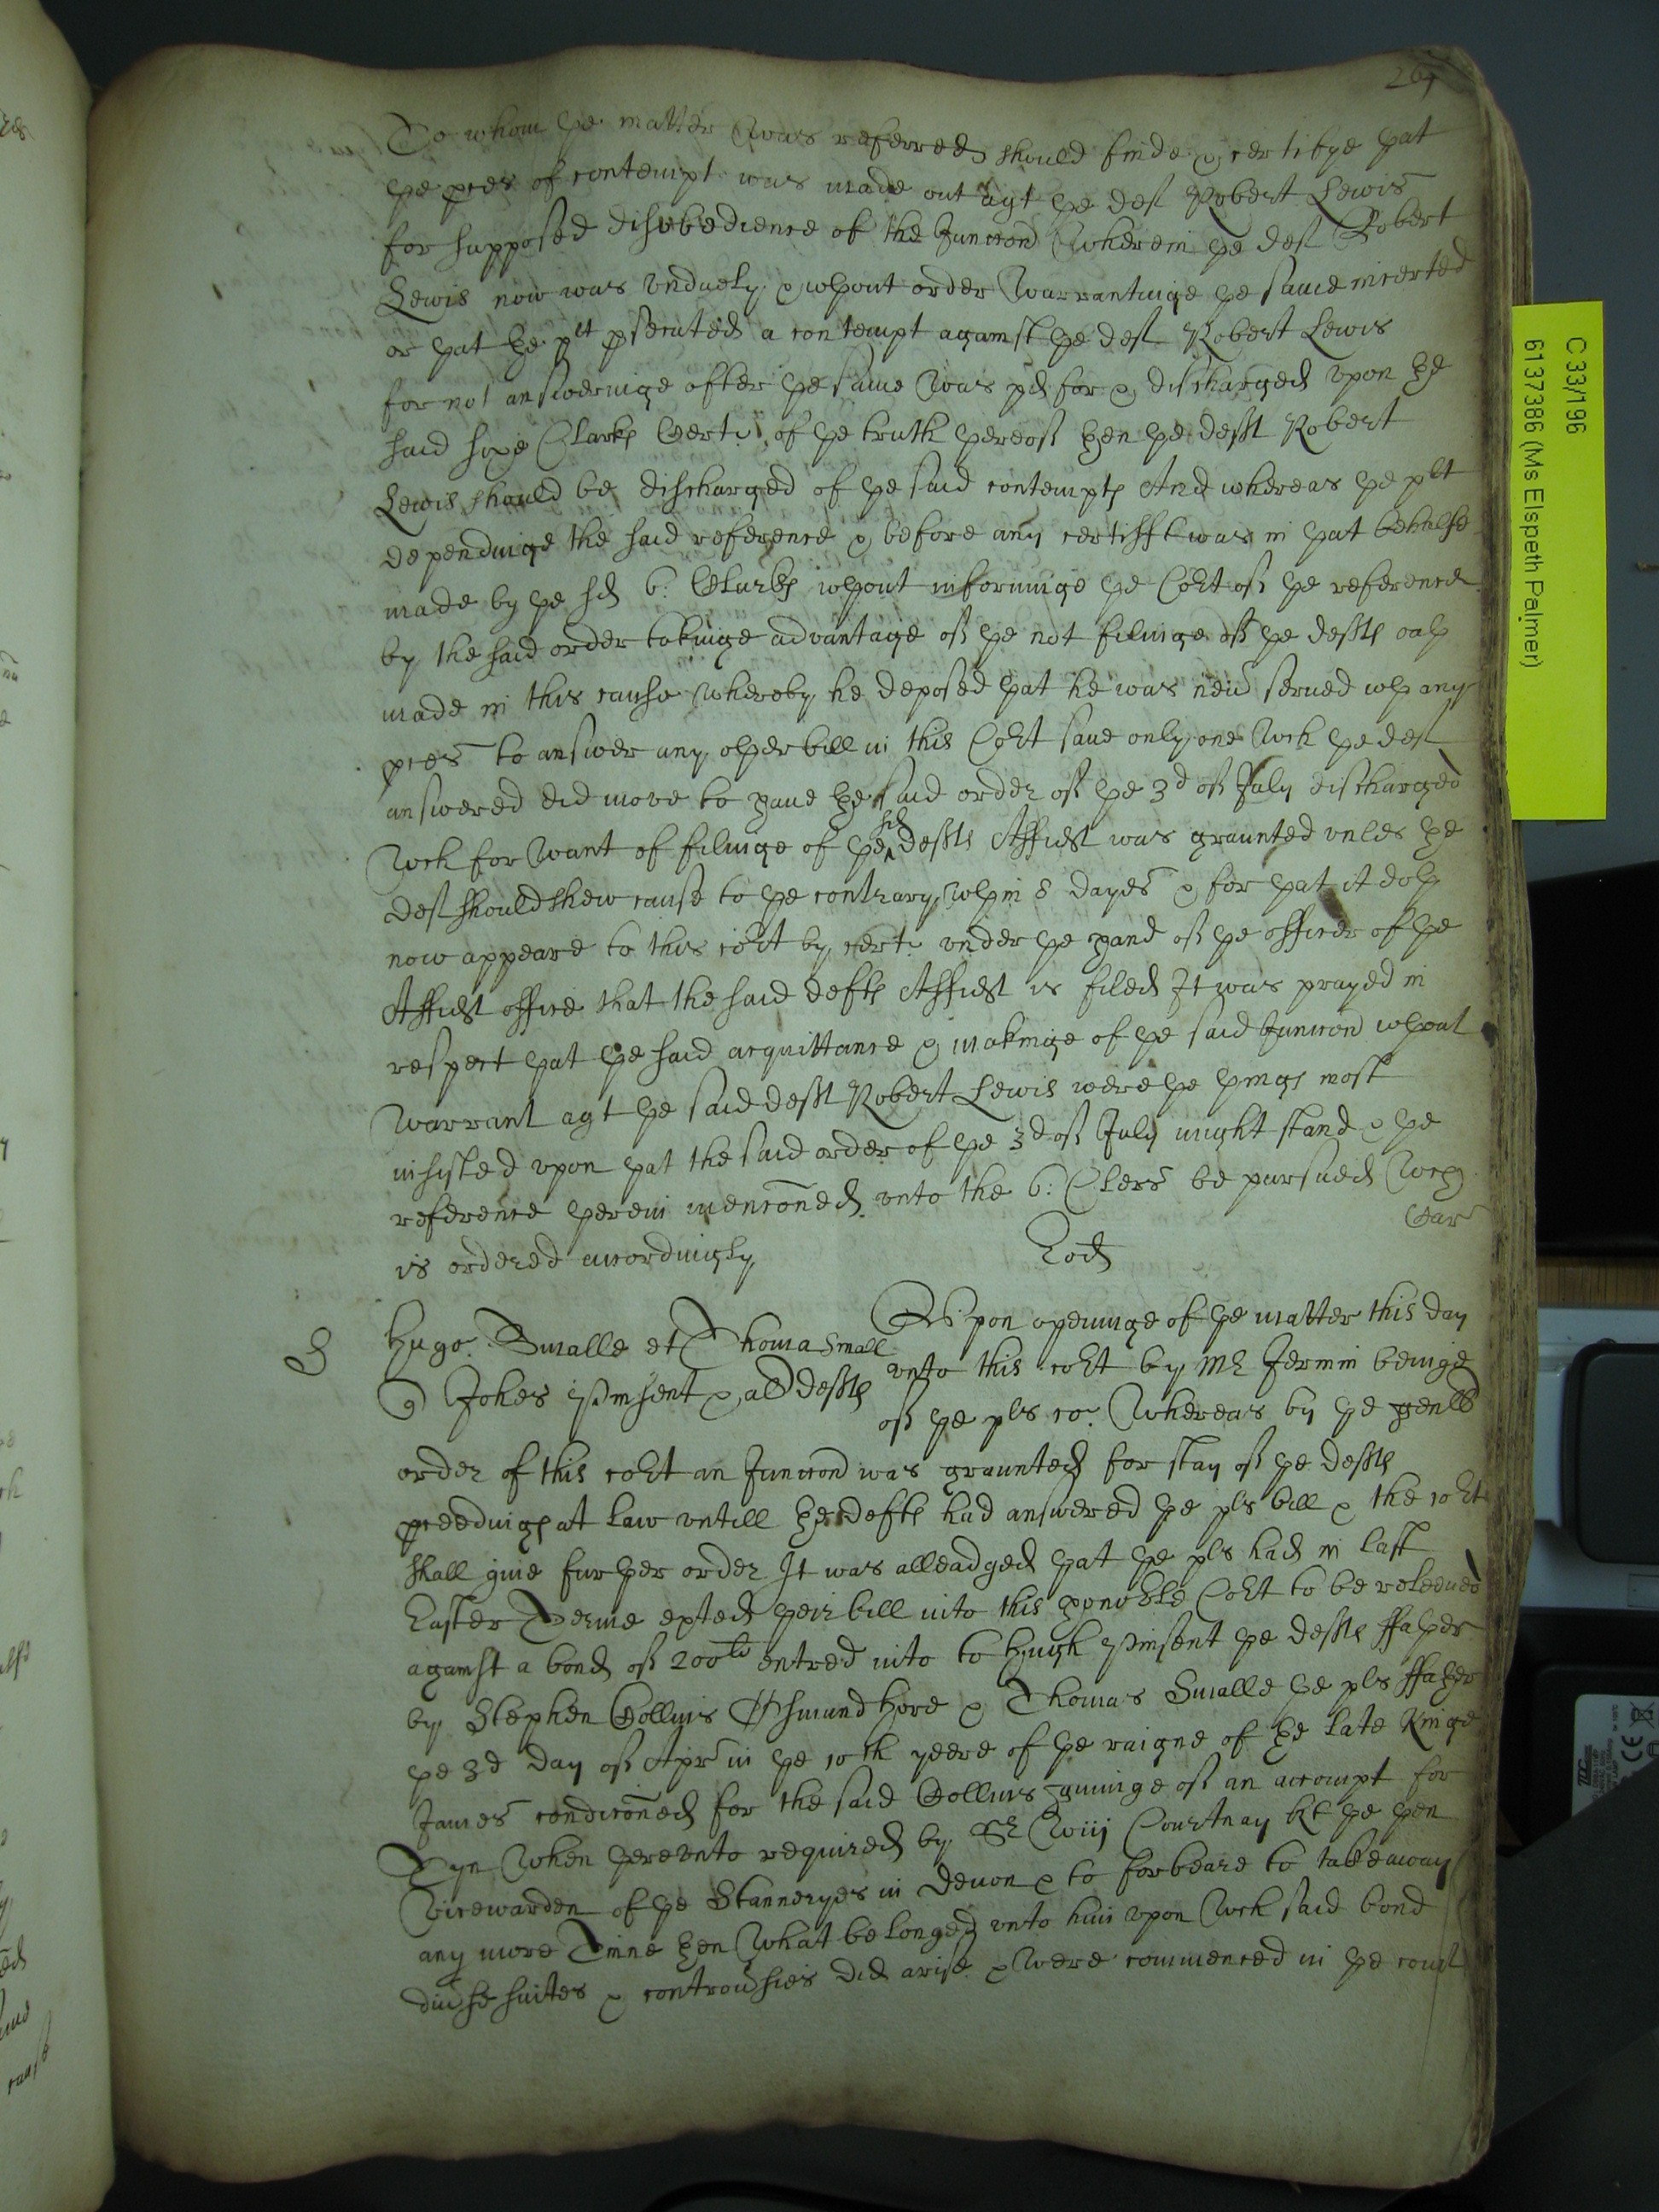 267
To whom þe matter was referred should finde & certifye þat
þe pces of contempt was made out agt þe def Robert Lewis
for supposed disobedience of the Iunccon wherein þe def Robert
Lewis now was vnduely & wþout order warrantinge þe same incerted
or þat þe plt psecuted a contempt against þe def Robert Lewis
for not answeringe after þe same was pd for & discharged vpon þe
said sixe Clarks Certi: of þe truth þereof þen þe deft Robert
Lewis should be discharged of þe said contempts And whereas þe plt
dependinge the said reference & before any certifft was in þat behalfe
made by þe sd 6: Clarks wþout informinge þe Cort of þe reference
by the said order takinge advantage of þe not filinge of þe defts oaþ
made in this cause whereby he deposed þat he was neu serued wþ any
pces to answer any oþer bill in this Cort saue only one wch þe def
answered did move to haue þe said order of þe 3d of July discharged
wch for want of filinge of þe sd defts Affidt was graunted vnles þe
def should shew cause to þe contrary wþin 8 dayes & for þat it doþ
now appeare to this cort by certi: vnder þe hand of þe officer of þe
Affidt office that the said defts Affidt is filed It was prayed in
respect þat þe said acquittance & makinge of þe said Iunccon wþout
warrant agt þe said deft Robert Lewis were þe þings most
insisted vpon þat the said order of þe 3d of July might stand & þe
reference þerein menconed vnto the 6: Clers be pursued wch
is ordered accordingly
Hugo: Smalle et Thoma Small
Johes Pinsent & al defts
Vpon openinge of þe matter this day
vnto this cort by Mr Jermin beinge
of þe pls co: Whereas by þe genll
order of this cort an Iunccon was graunted for stay of þe defts
pceedings at law vntill þe defts had answered þe pls bill & the cort
shall giue furþer order It was alleadged þat þe pls had in last
Easter Terme exted þeir bill into this honoble Cort to be releeued
against a bond of 200li entred into to Hugh Pinsent þe defts ffaþer
by Stephen Collins Osmund Hore & Thomas Smalle þe pls ffaþer
þe 3d day of Apr in þe 10th yeere of þe raigne of þe late Kinge
James condiconed for the said Collins giuinge of an accompt for
Tyn when þerevnto required by Sr Willi Courtnay Kt þe þen
vicewarden of þe Stanneryes in Deuon & to forbeare to take away
any more Tinne þen what belonged vnto him vpon wch said bond
diuse suites & controusies did arise & were commenced in þe court
C 33/196
6137386 (Ms Elspeth Palmer)